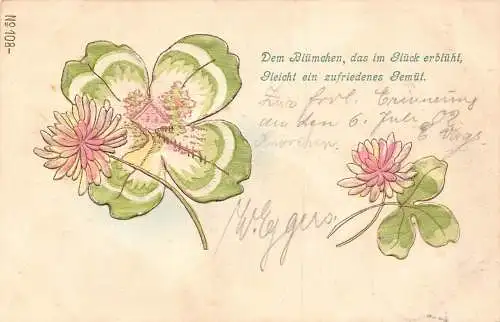 No 108-
Dem Blümchen, das im Glück erblüht,
Gleicht ein zufriedenes Gemüt.
Zur frdl. Erinnerung
an den 6. Juli 02
E. Vogs
W. Eggers.